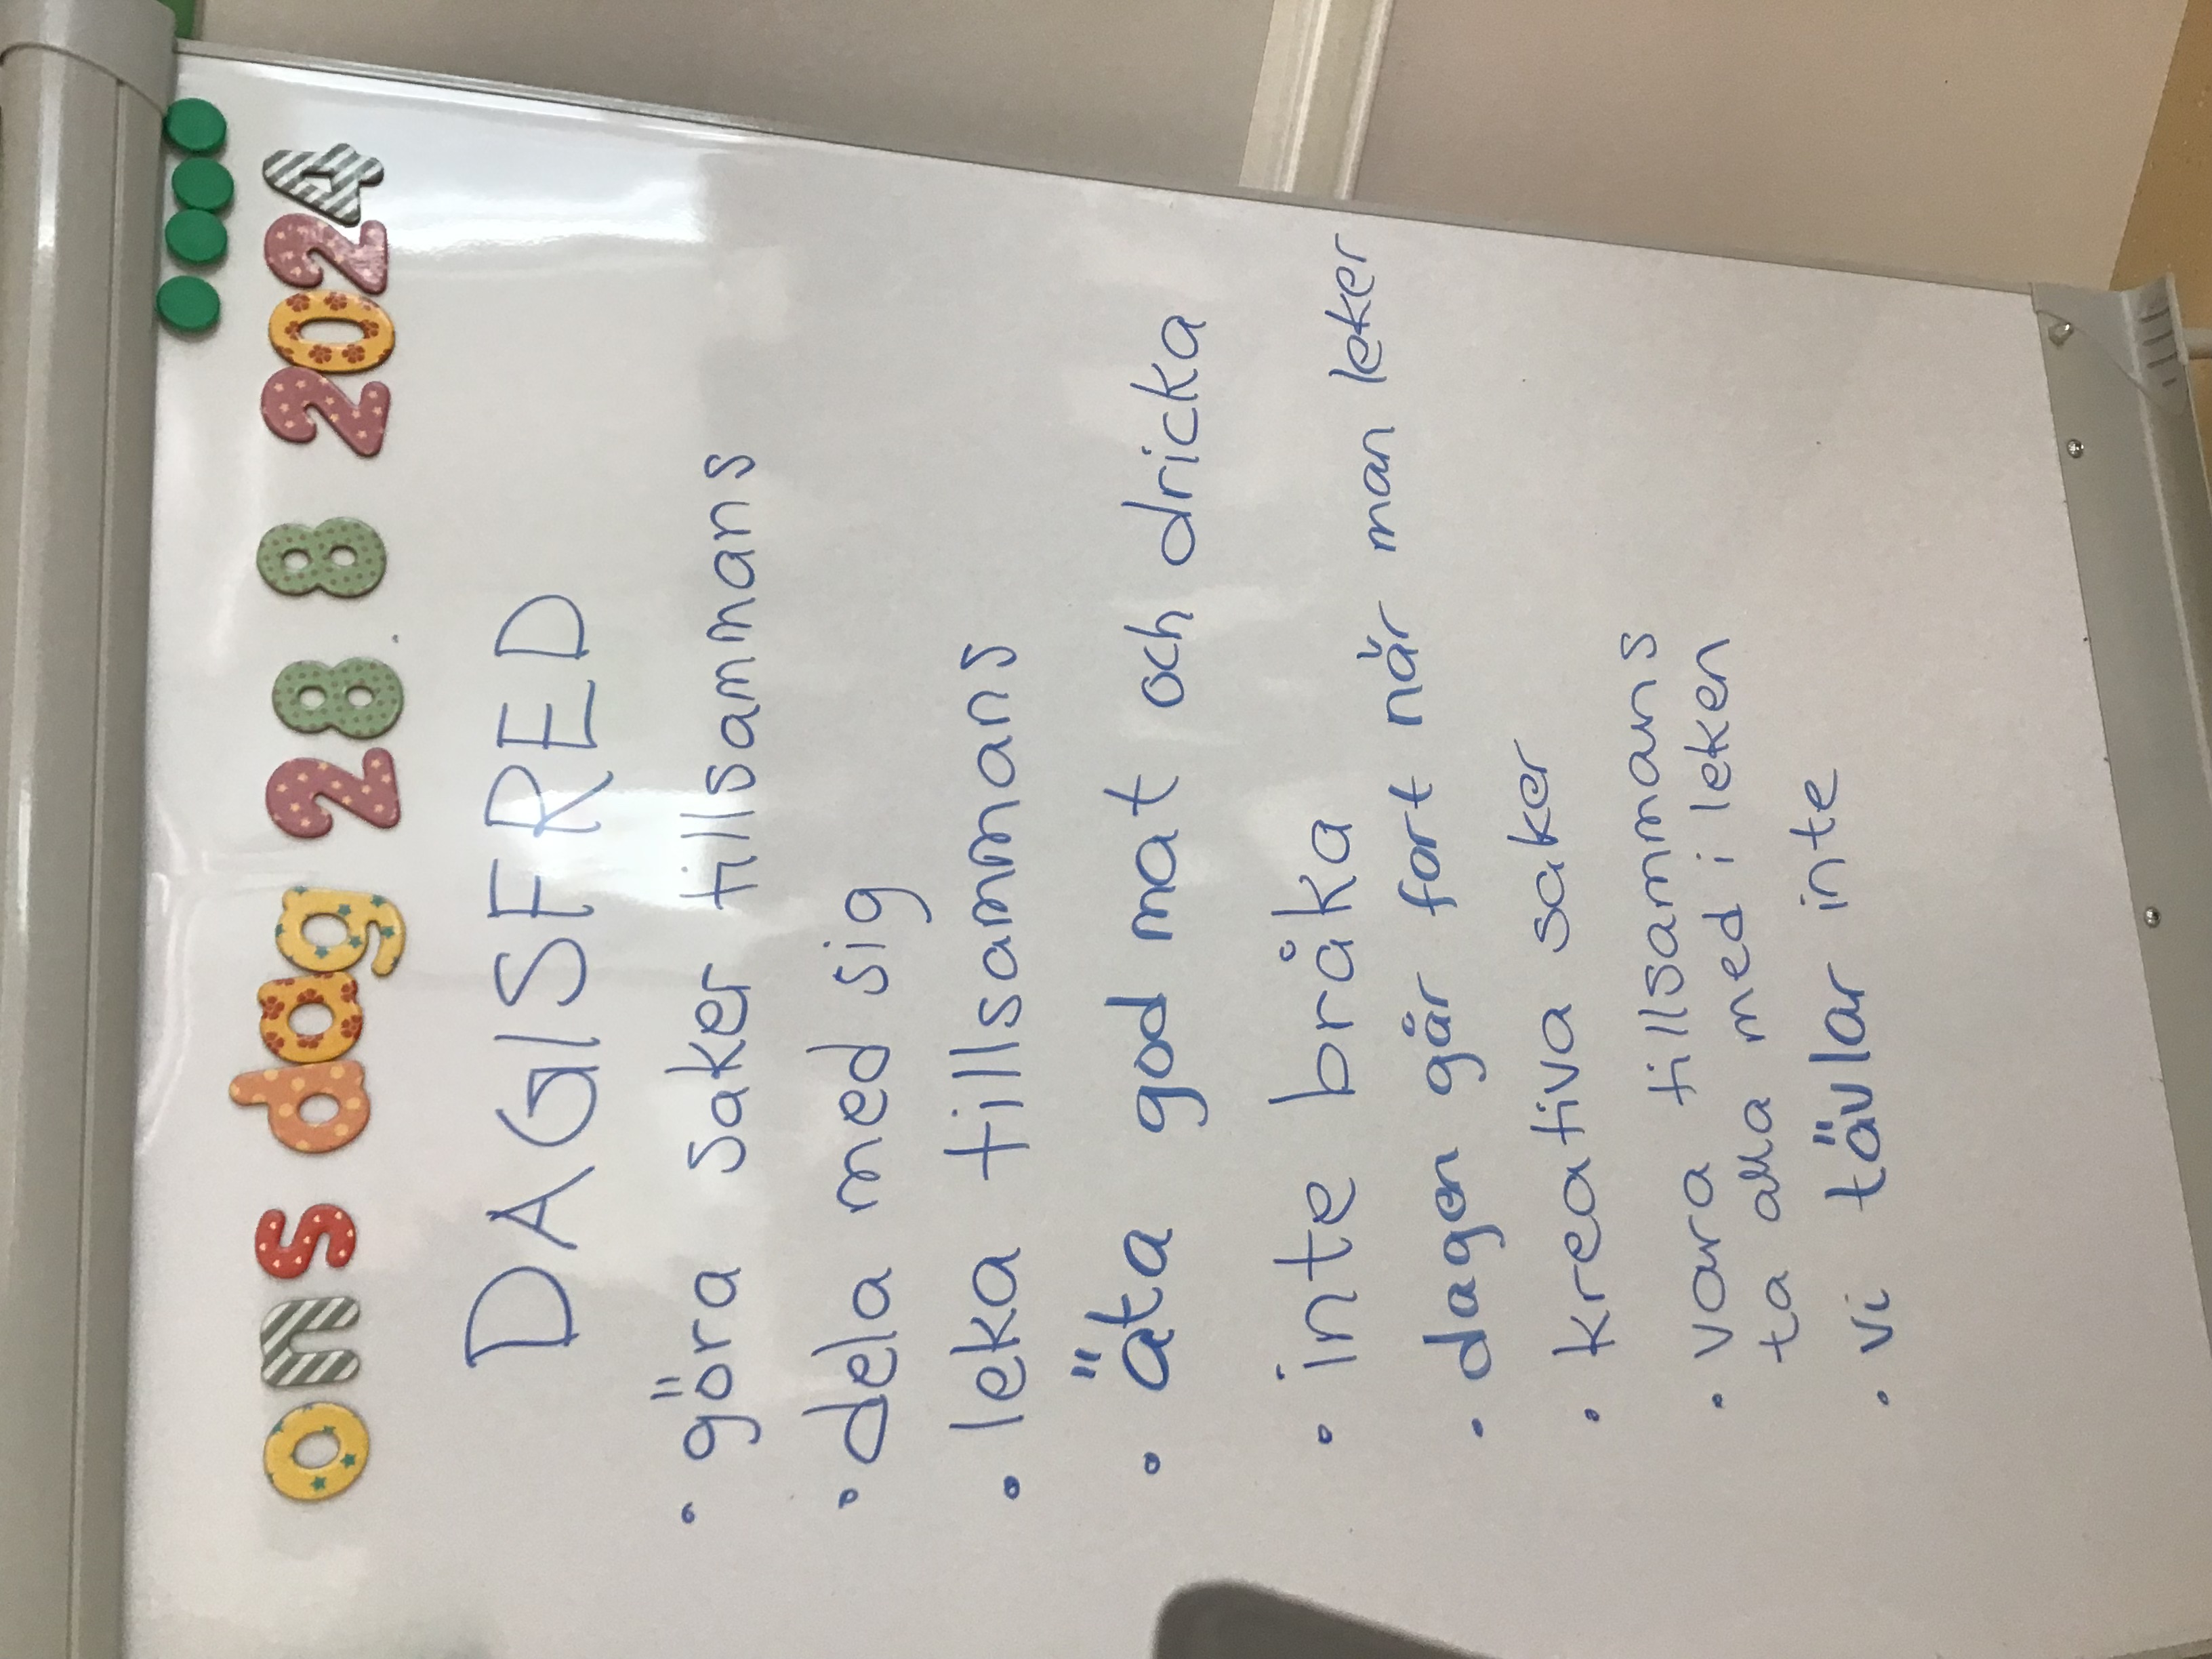 ons dag 28 8 2024
DAGISFRED
• göra saker tillsammans
• dela med sig
• leka tillsammans
• äta god mat och dricka
• inte bråka
• dagen går fort när man leker
• kreativa saker
• vara tillsammans
ta alla med i leken
• vi tävlar inte